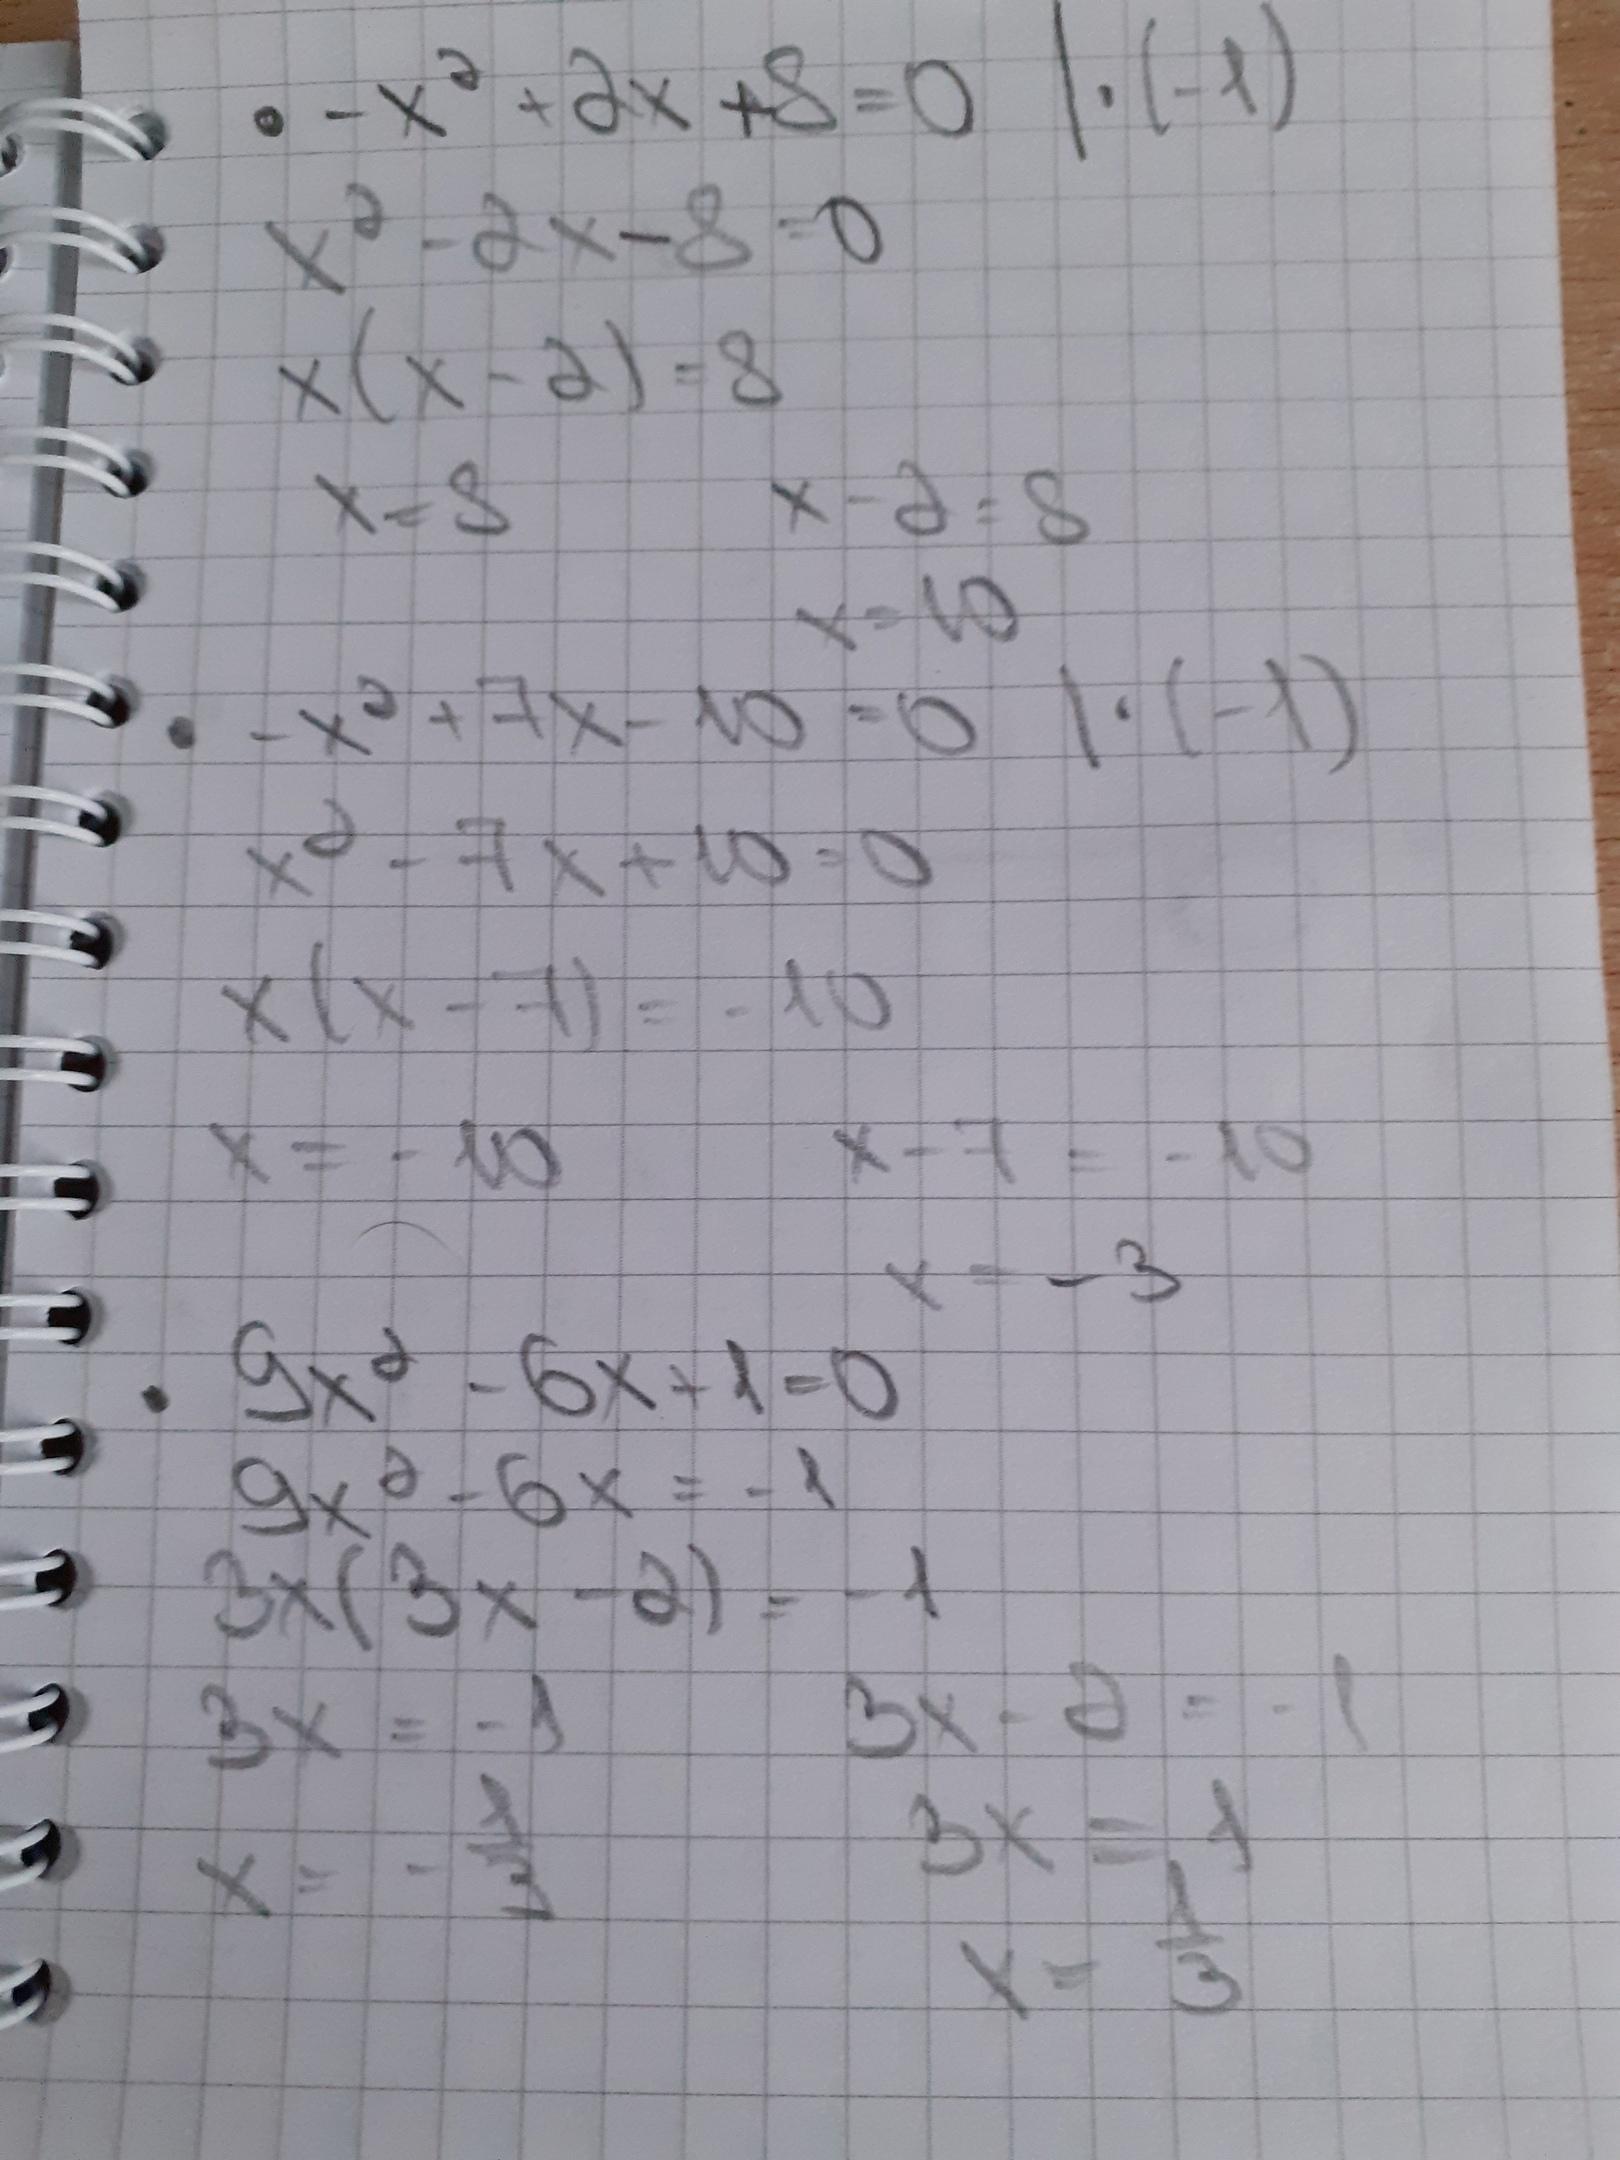 • -x² + 2x + 8 = 0 | · (-1)
x² - 2x - 8 = 0
x(x - 2) = 8
x = 8 x - 2 = 8
x = 10
• -x² + 7x - 10 = 0 | · (-1)
x² - 7x + 10 = 0
x(x - 7) = -10
x = -10 x - 7 = -10
x = -3
• 9x² - 6x + 1 = 0
9x² - 6x = -1
3x(3x - 2) = -1
3x = -1 3x - 2 = -1
x = -1/3 3x = 1
x = 1/3